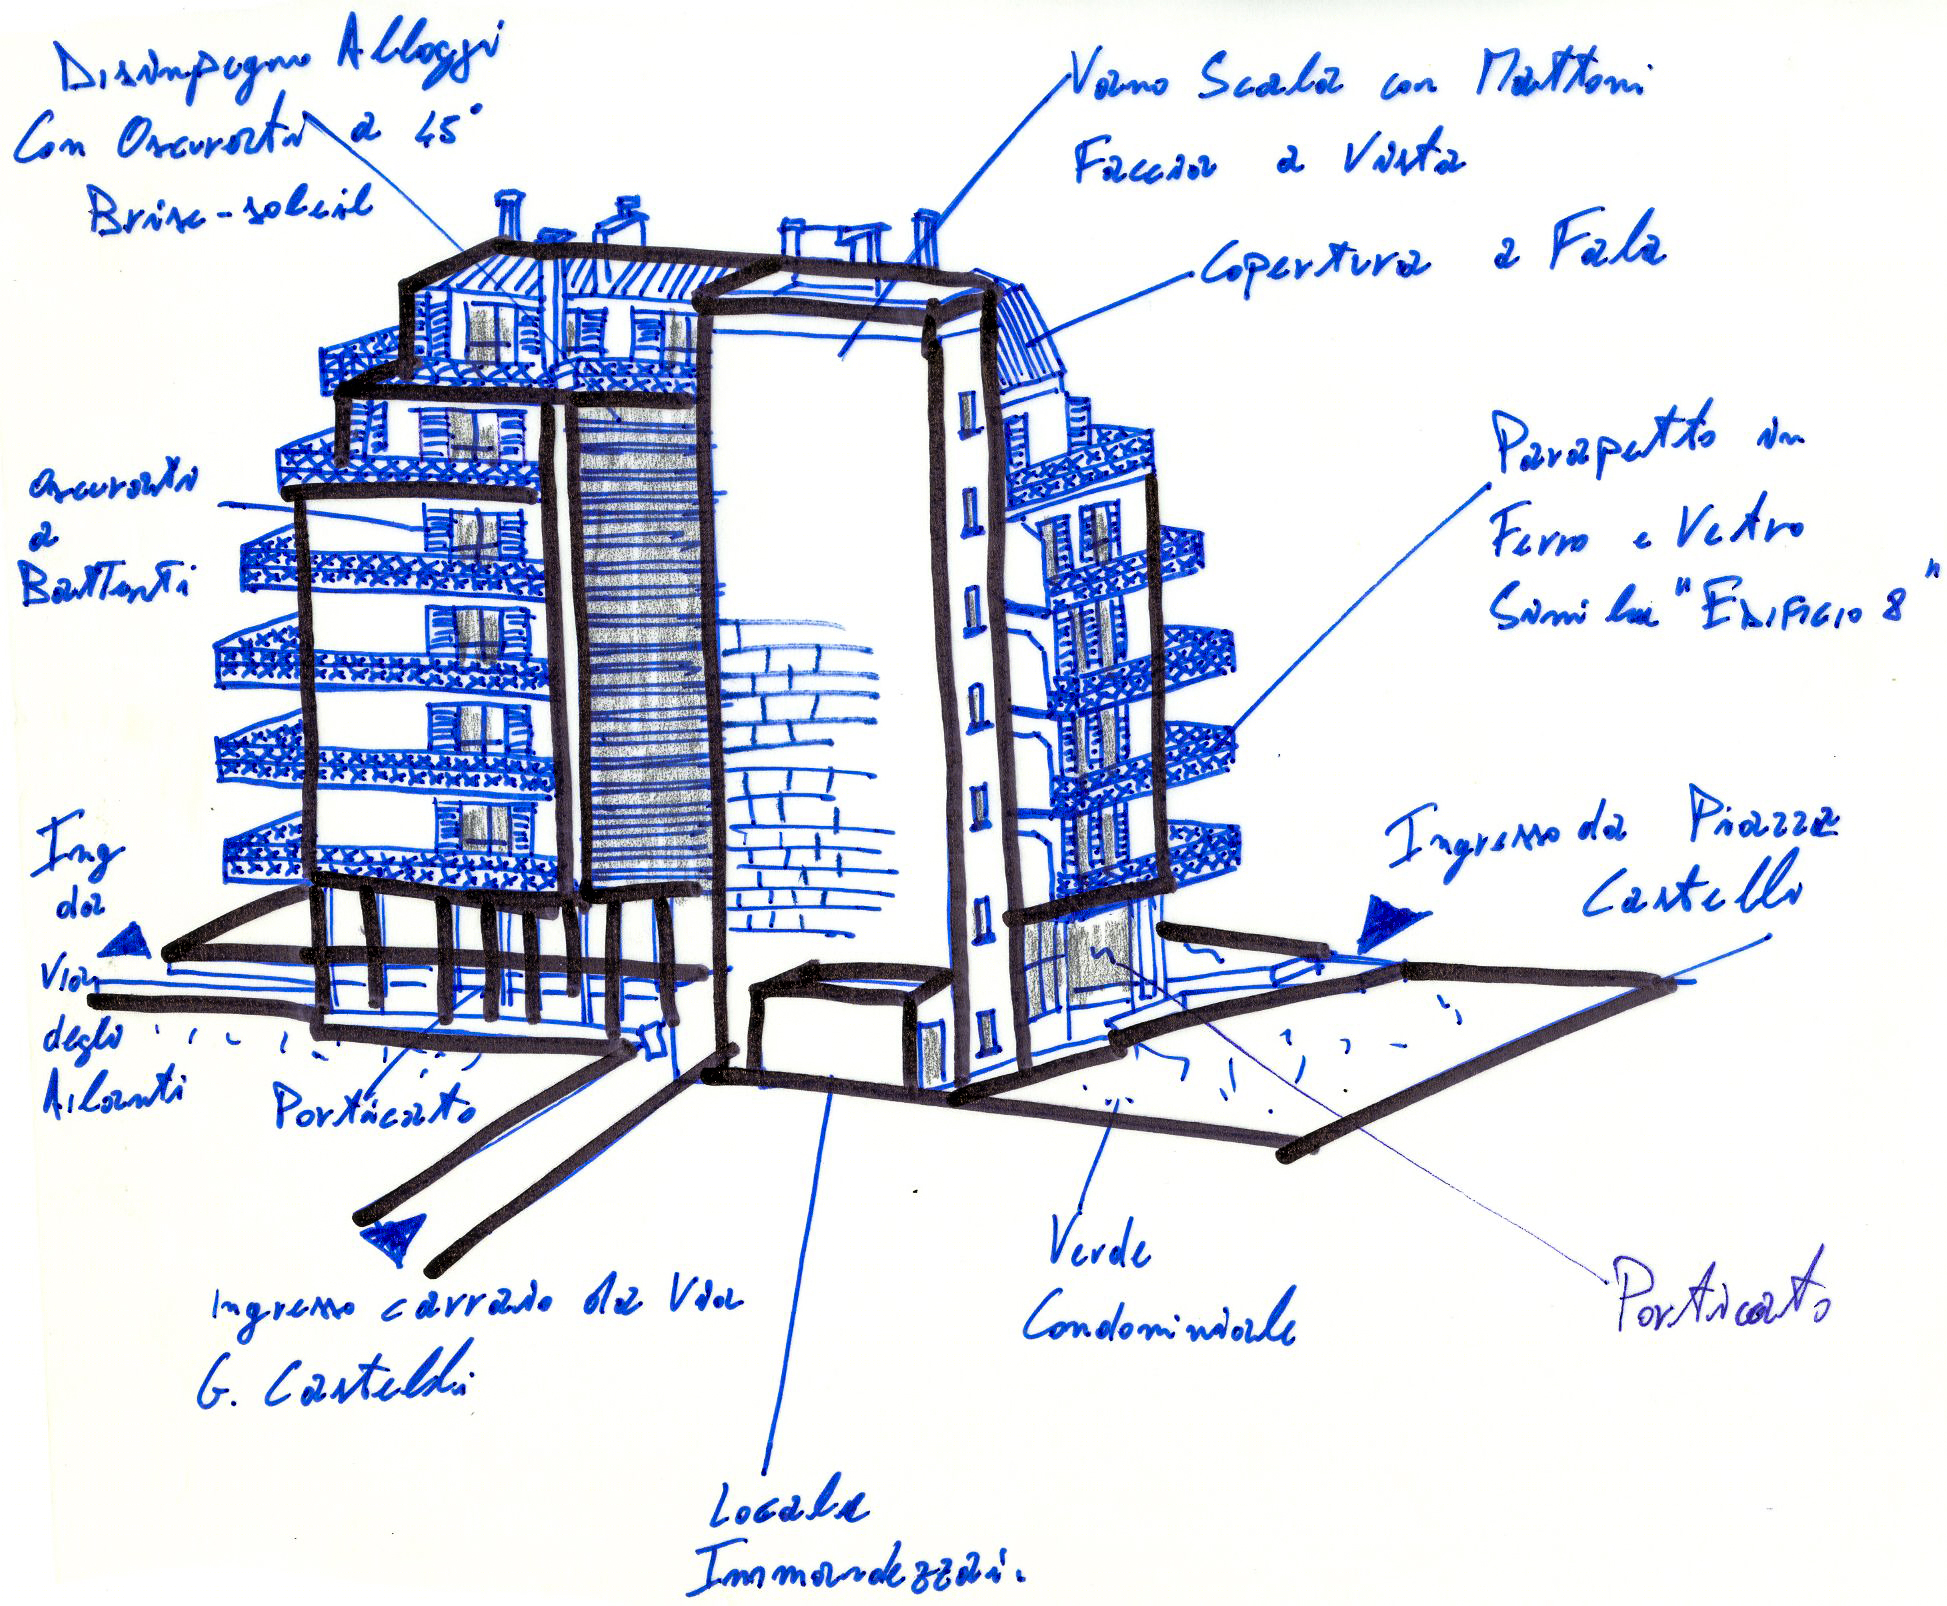 Disimpegno Alloggi
Con Oscuranti a 45°
Brise-soleil
Vano Scala con Mattoni
Faccia a Vista
Copertura a Fala
Parapetto in
Ferro e Vetro
Simile "EDIFICIO 8"
oscuranti
a
Battenti
Ing
da
Via
degli
Ailanti
Ingresso da Piazza
Castello
Porticato
Ingresso carraio da Via
G. Castelli
Verde
Condominiale
Porticato
Locale
Immondezzai.